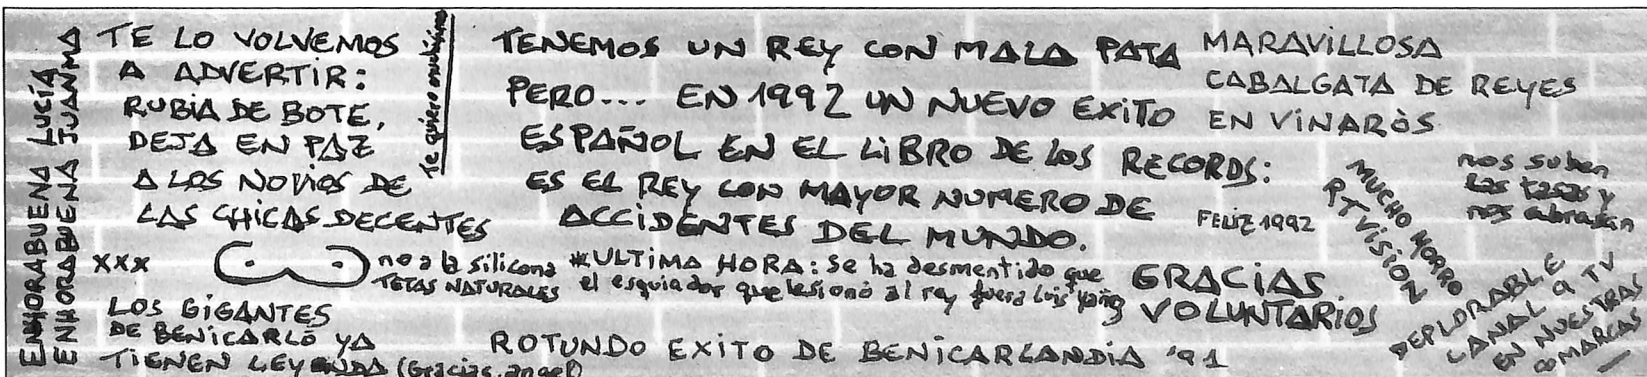 ENHORABUENA LUCÍA
ENHORABUENA JUANMA
TE LO VOLVEMOS
A ADVERTIR:
RUBIA DE BOTE,
DEJA EN PAZ
A LOS NOVIOS DE
LAS CHICAS DECENTES
te quiero muchísimo
XXX
no a la silicona
TETAS NATURALES
LOS GIGANTES
DE BENICARLÓ YA
TIENEN LEYENDA (Gracias, angel)
TENEMOS UN REY CON MALA PATA
PERO... EN 1992 UN NUEVO EXITO
ESPAÑOL EN EL LIBRO DE LOS RECORDS:
ES EL REY CON MAYOR NUMERO DE
ACCIDENTES DEL MUNDO.
*ULTIMA HORA: Se ha desmentido que
el esquiador que lesionó al rey fuera Luis
ROTUNDO EXITO DE BENICARLANDIA '91
MARAVILLOSA
CABALGATA DE REYES
EN VINARÒS
FELIZ 1992
GRACIAS
VOLUNTARIOS
MUCHO MORRO
RTVISION
nos suben
las tasas y
nos abrasan
DEPLORABLE
CANAL a TV
EN NUESTRAS
COMARCAS